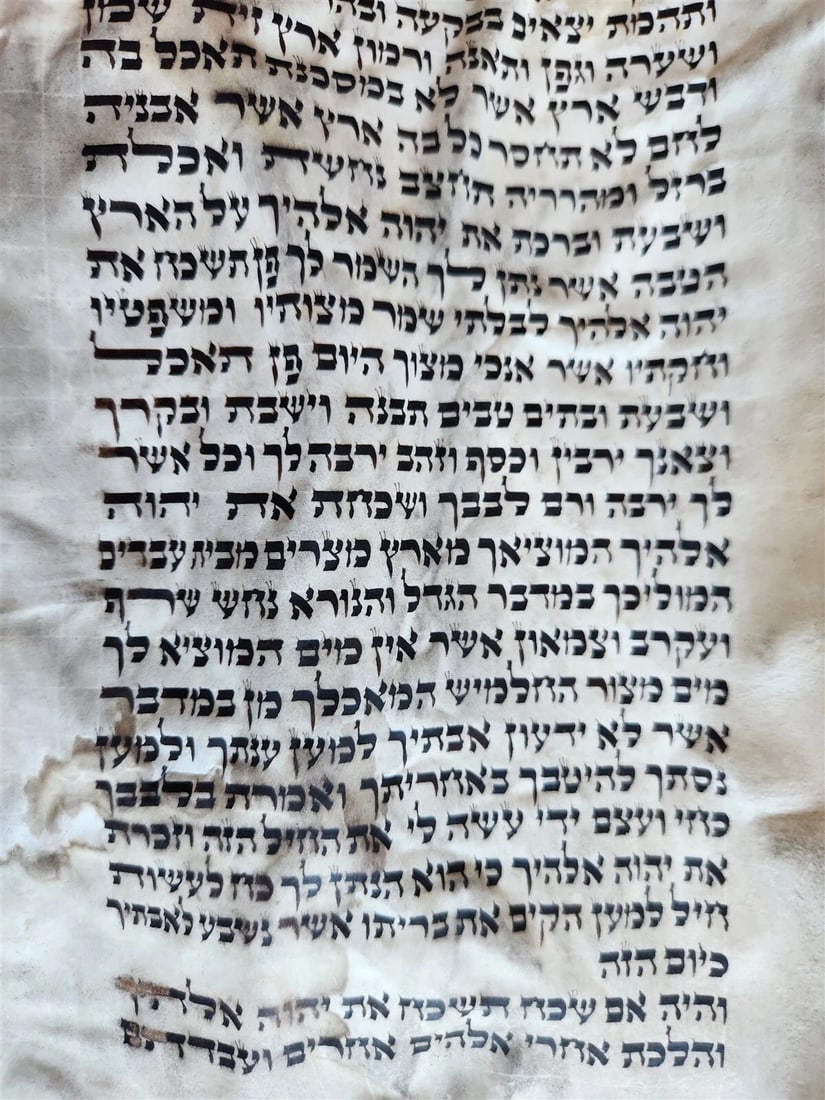 ותהמת יצאים בבקעה ובהר ארץ חטה
ושערה וגפן ותאנה ורמון ארץ זית שמן
ודבש ארץ אשר לא במסכנת תאכל בה
לחם לא תחסר כל בה ארץ אשר אבניה
ברזל ומהרריה תחצב נחשת ואכלת
ושבעת וברכת את יהוה אלהיך על הארץ
הטבה אשר נתן לך השמר לך פן תשכח את
יהוה אלהיך לבלתי שמר מצותיו ומשפטיו
וחקתיו אשר אנכי מצוך היום פן תאכל
ושבעת ובתים טבים תבנה וישבת ובקרך
וצאנך ירבין וכסף וזהב ירבה לך וכל אשר
לך ירבה ורם לבבך ושכחת את יהוה
אלהיך המוציאך מארץ מצרים מבית עבדים
המוליכך במדבר הגדל והנורא נחש שרף
ועקרב וצמאון אשר אין מים המוציא לך
מים מצור החלמיש המאכלך מן במדבר
אשר לא ידעון אבתיך למען ענתך ולמען
נסתך להיטבך באחריתך ואמרת בלבבך
כחי ועצם ידי עשה לי את החיל הזה וזכרת
את יהוה אלהיך כי הוא הנתן לך כח לעשות
חיל למען הקים את בריתו אשר נשבע לאבתיך
כיום הזה
והיה אם שכח תשכח את יהוה אלהיך
והלכת אחרי אלהים אחרים ועבדתם